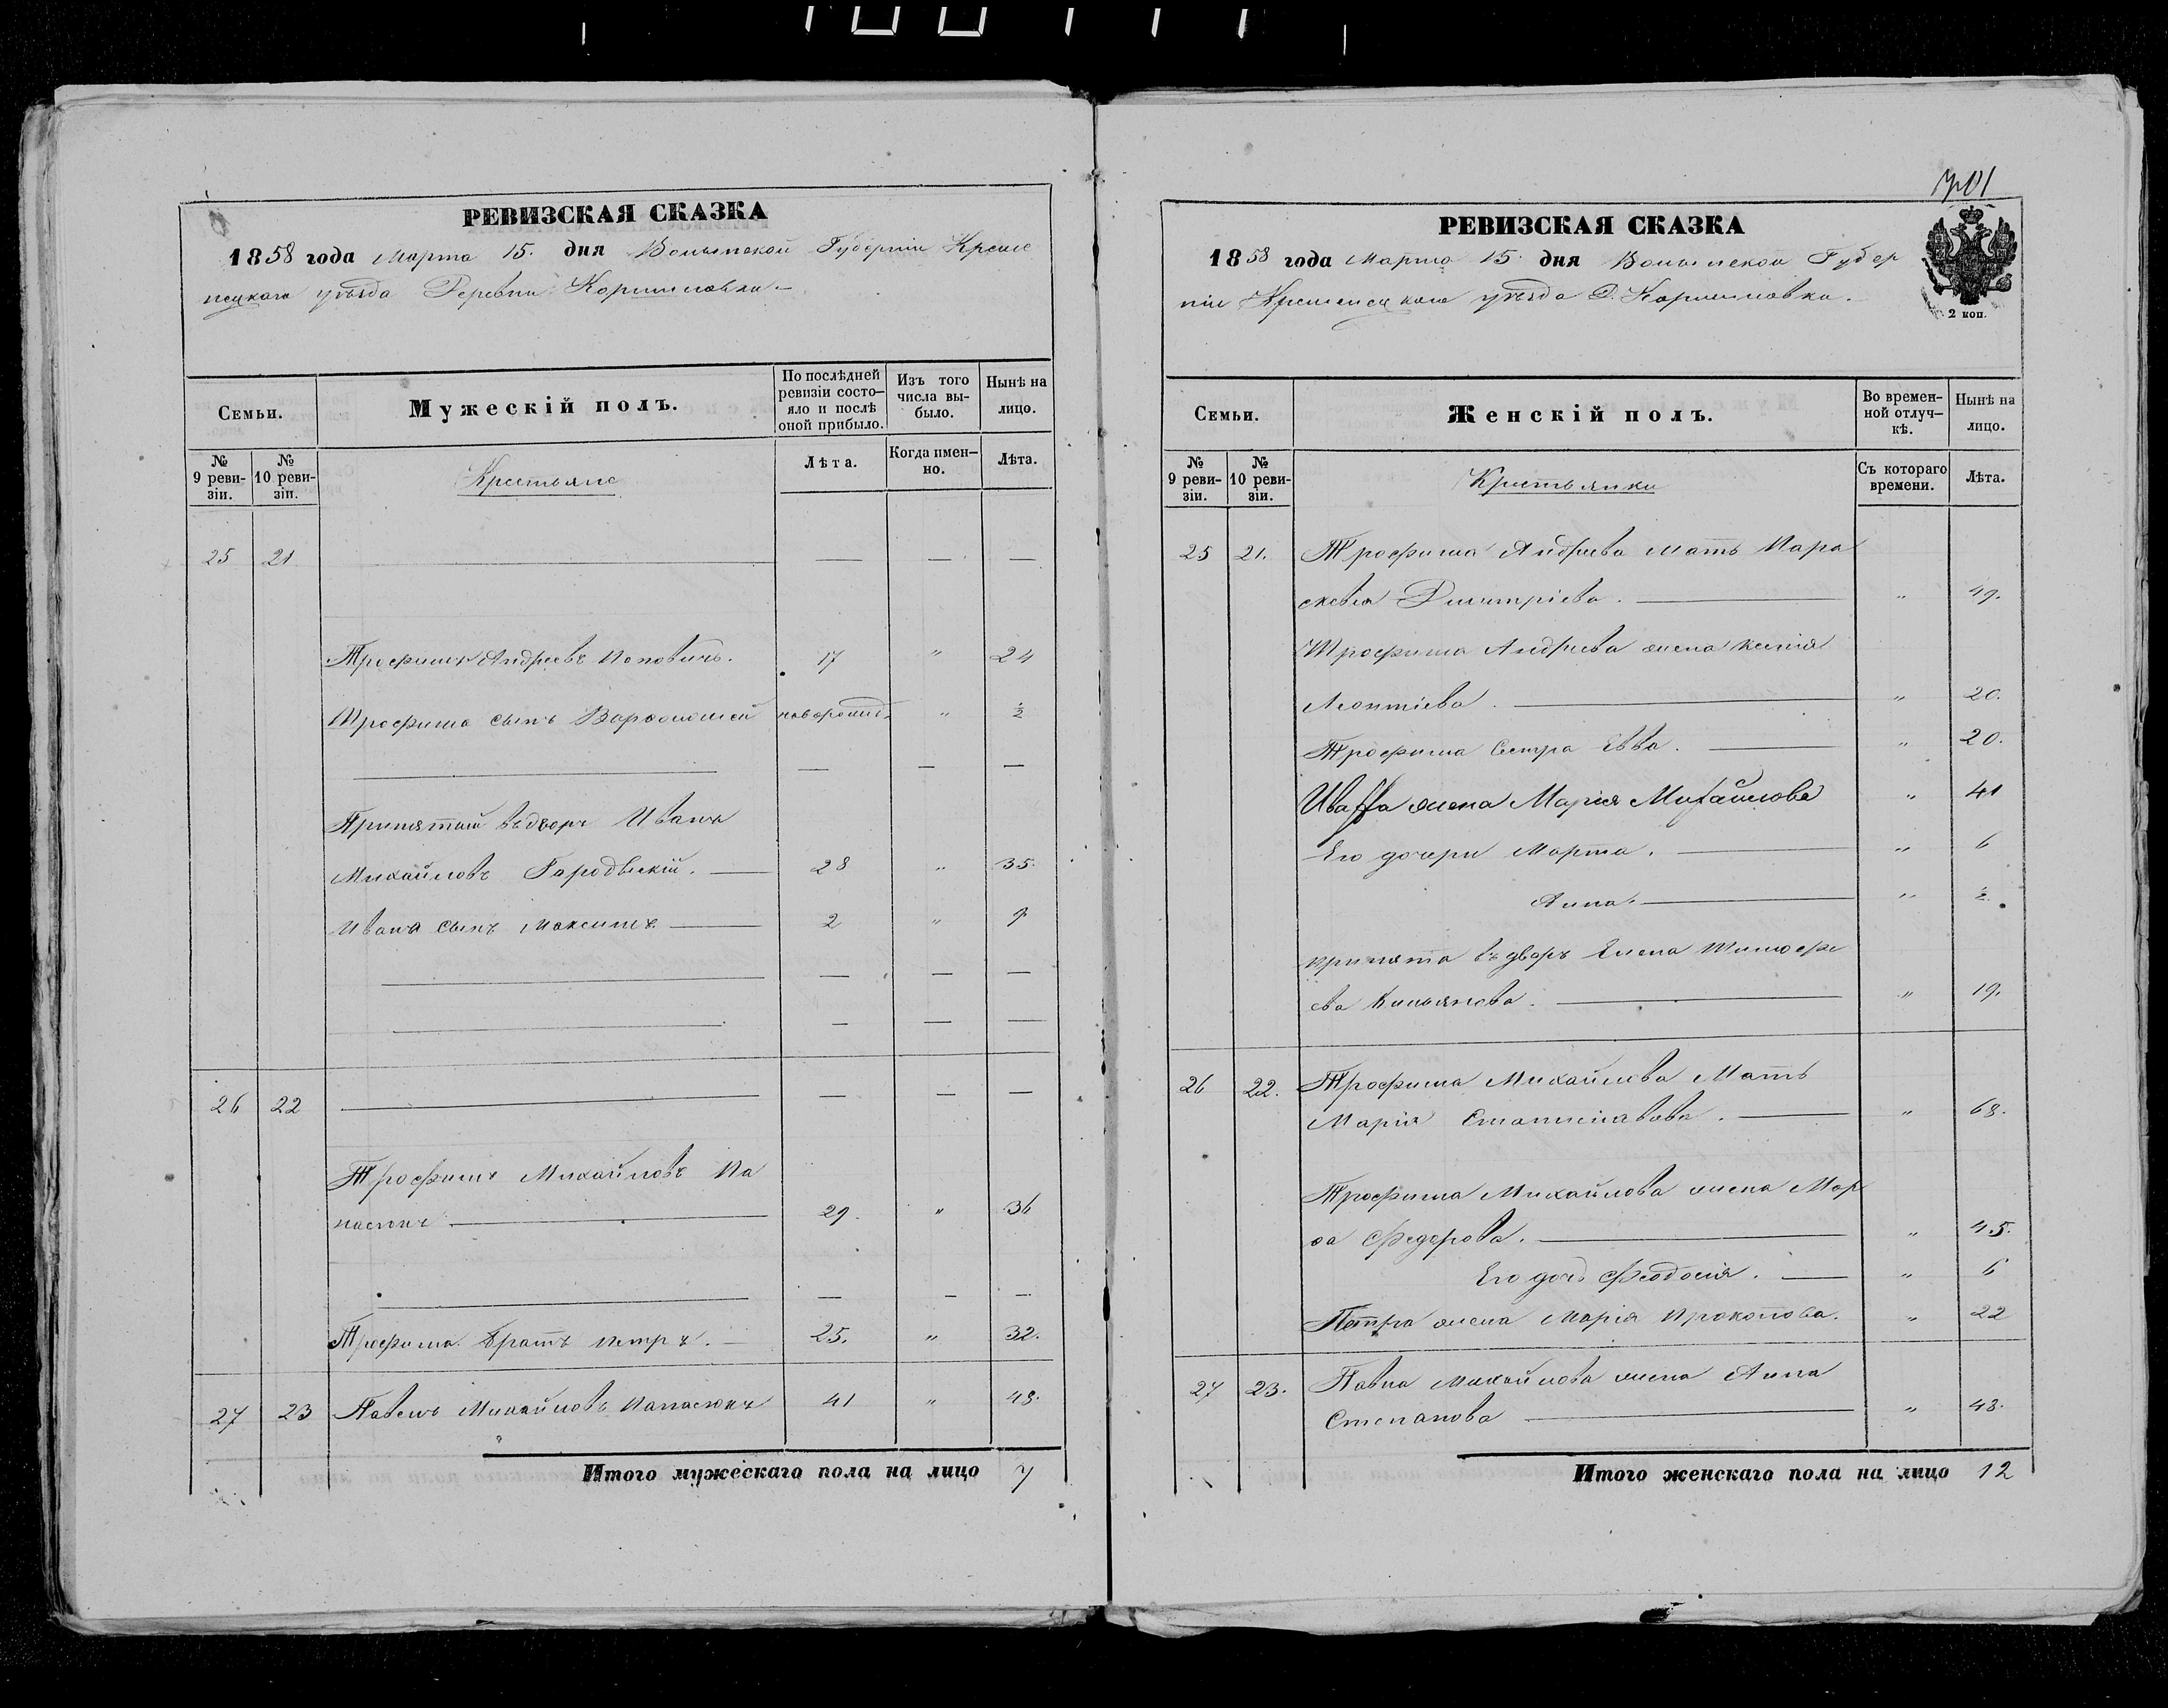 РЕВИЗСКАЯ СКАЗКА
1858 года Марта 15. дня Волынской Губерніи Креме
нецкаго уѣзда Деревни
Семьи.
Мужескій полъ.
По послѣдней ревизіи состо—яло и послѣ оной прибыло.
Изъ того числа вы-было.
Нынѣ на лицо.
№ 9 реви-зіи.
№ 10 реви-зіи.
Крестьяне
Лѣта.
Когда имен-но.
Лѣта.
25 21 — — —
Трофимъ Андреевъ Поповичъ. 17 " 24
Трофима сынъ Варѳоломей новорожд. " ½
— — —
Принятый въ дворъ Иванъ
Михайловъ Городыскій. — 28 " 35.
Ивана сынъ Максимъ — 2 " 9
— — —
— — —
26 22 — — —
Трофимъ Михайловъ Па
насюкъ — 29. " 36
— — —
Трофима братъ Петръ. — 25. " 32.
27 23 Павелъ Михайловъ Панасюкъ 41 " 48.
Итого мужескаго пола на лицо 7
701
РЕВИЗСКАЯ СКАЗКА
1858 года Марта 15. дня Волынской Губер
ніи Кременецкаго уѣзда Д.
2 коп.
Семьи.
Женскій полъ.
Во времен-ной отлуч—кѣ.
Нынѣ на лицо.
№ 9 реви-зіи.
№ 10 реви-зіи.
Крестьянки
Съ котораго времени.
Лѣта.
25 21. Трофима Андреева мать Пара
скевія Димитріева. — " 49.
Трофима Андреева жена Ксенія
Леонтіева. — " 20.
Трофима Сестра Евва. — " 20.
Ивана жена Марія Михайлова " 41
Его дочери Марта. — " 6
Анна. — " ½.
принята въ дворъ Елена Тимофе
ева — " 19.
26 22. Трофима Михайлова Мать
Марія Станиславова. — " 68.
Трофима Михайлова жена Мар
ѳа Федорова. — " 45.
Его дочь Феодосія. — " 6
Петра жена Марія Прокопова. " 22
27 23. Павла Михайлова жена Анна
Степанова — " 48.
Итого женскаго пола на лицо 12